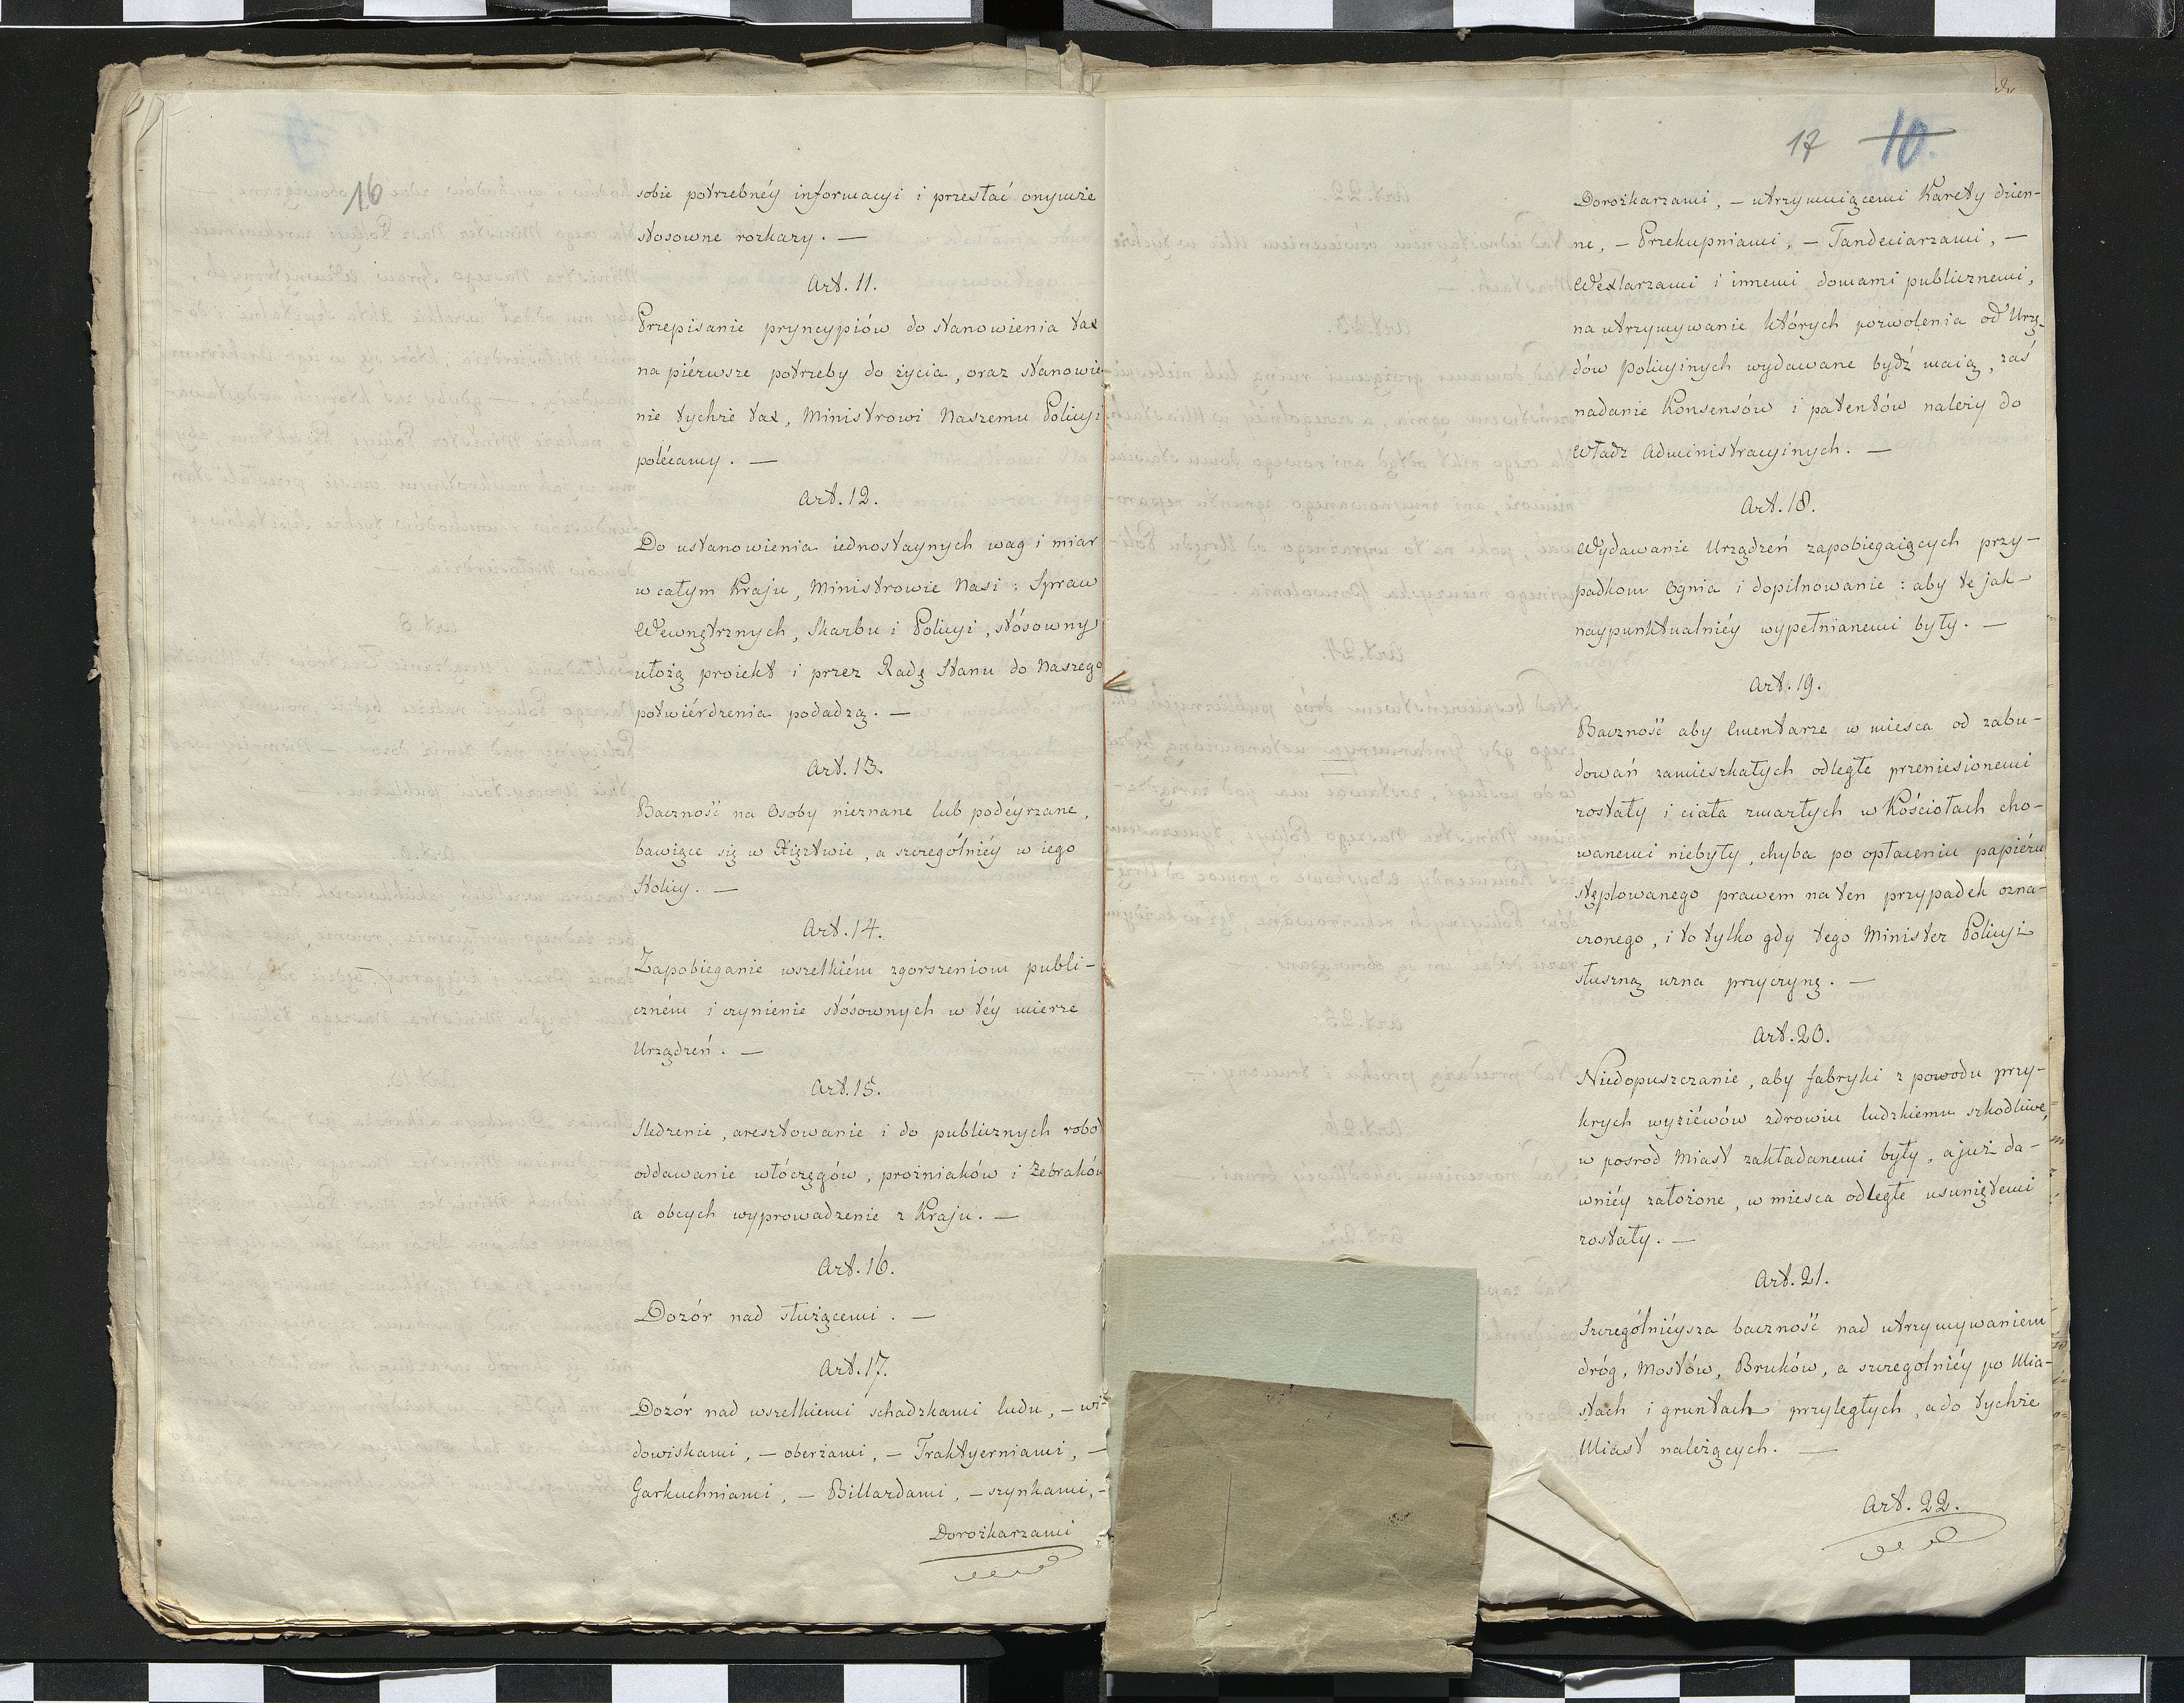 16
sobie potrzebnéy informacyi i przesłać onymże
stosowne rozkazy. —
Art. 11.
Przepisanie pryncypiów do stanowienia tax
na piérwsze potrzeby do życia, oraz stanowie-
nie tychże tax, Ministrowi Naszemu Policyi
polécamy. —
Art. 12.
Do ustanowienia iednostaynych wag i miar
w całym Kraju, Ministrowie Nasi: Spraw
Wewnętrznych, Skarbu i Policyi, stósowny
ułożą proiekt i przez Radę Stanu do Naszego
potwiérdzenia podadzą. —
Art. 13.
Baczność na Osoby nieznane lub podéyrzane,
bawiące się w Xięztwie, a szczególniéy w iego
Stolicy. —
Art. 14.
Zapobieganie wszelkiém zgorszeniom publi-
czném i czynienie stósownych w téy mierze
Urządzeń. —
Art. 15.
Sledzenie, aresztowanie i do publicznych robot
oddawanie włóczęgów, prożniaków i Żebraków
a obcych wyprowadzenie z Kraju. —
Art. 16.
Dozór nad służącemi. —
Art. 17.
Dozór nad wszelkiemi schadzkami ludu, – wi-
dowiskami, – oberżami, – Traktyerniami, –
Garkuchniami, – Billardami, – szynkami, –
Dorożkarzami
17 10.
Dorożkarzami, – utrzymuiącemi Karety dzien-
ne, – Przekupniami, – Tandeciarzami, –
Wexlarzami i innemi domami publicznemi,
na utrzymywanie których pozwolenia od Urzę-
dów Policyinych wydawane bydź maią, zaś
nadanie Konsensów i patentów należy do
Władz Administracyinych. —
Art. 18.
Wydawanie Urządzeń zapobiegaiących przy-
padkom Ognia i dopilnowanie: aby te jak-
naypunktualniéy wypełnianemi były. —
Art. 19.
Baczność aby Cmentarze w miesca od zabu-
dowań zamieszkałych odległe przeniesionemi
zostały i ciała zmarłych w Kościołach cho-
wanemi niebyły, chyba po opłaceniu papiéru
stęplowanego prawem na ten przypadek ozna-
czonego, i to tylko gdy tego Minister Policyi
słuszną uzna przyczynę. —
Art. 20.
Niedopuszczanie, aby fabryki z powodu przy-
krych wyziéwów zdrowiu ludzkiemu szkodliwe,
w posrod Miast zakładanemi były, a już da-
wniéy założone, w miesca odległe usuniętemi
zostały. —
Art. 21.
Szczególniéysza baczność nad utrzymywaniem
dróg, Mostów, Bruków, a szczególniéy po Mia-
stach i gruntach przyległych, a do tychże
Miast należących. —
Art. 22.